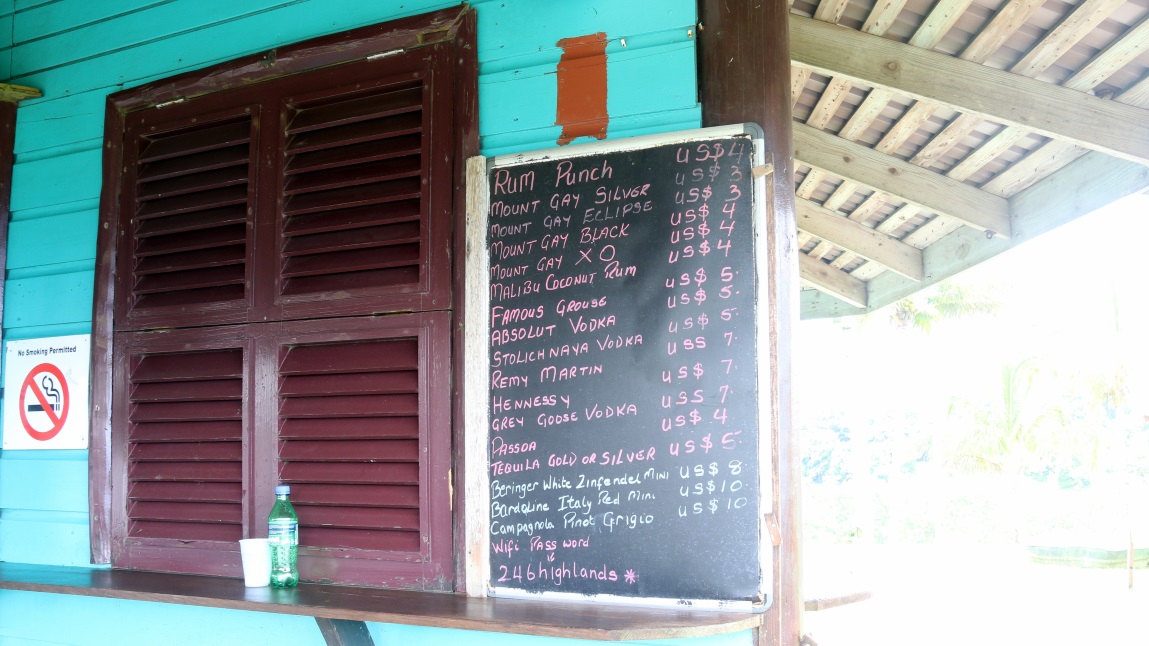 No Smoking Permitted
RUM PUNCH US$ 4
MOUNT GAY SILVER US$ 3
MOUNT GAY ECLIPSE US$ 3
MOUNT GAY BLACK US$ 4
MOUNT GAY XO US$ 4
MALIBU COCONUT RUM US$ 4
FAMOUS GROUSE US$ 5.
ABSOLUT VODKA US$ 5.
STOLICHNAYA VODKA US$ 5.
REMY MARTIN US$ 7.
HENNESSY US$ 7.
GREY GOOSE VODKA US$ 7.
PASSOA US$ 4.
TEQUILA GOLD OR SILVER US$ 5.
Beringer White Zinfendel MINI US$ 8
Bardoline Italy Red Mini US$ 10
Campagnola Pinot Grigio US$ 10
Wifi Pass word
is
246highlands*